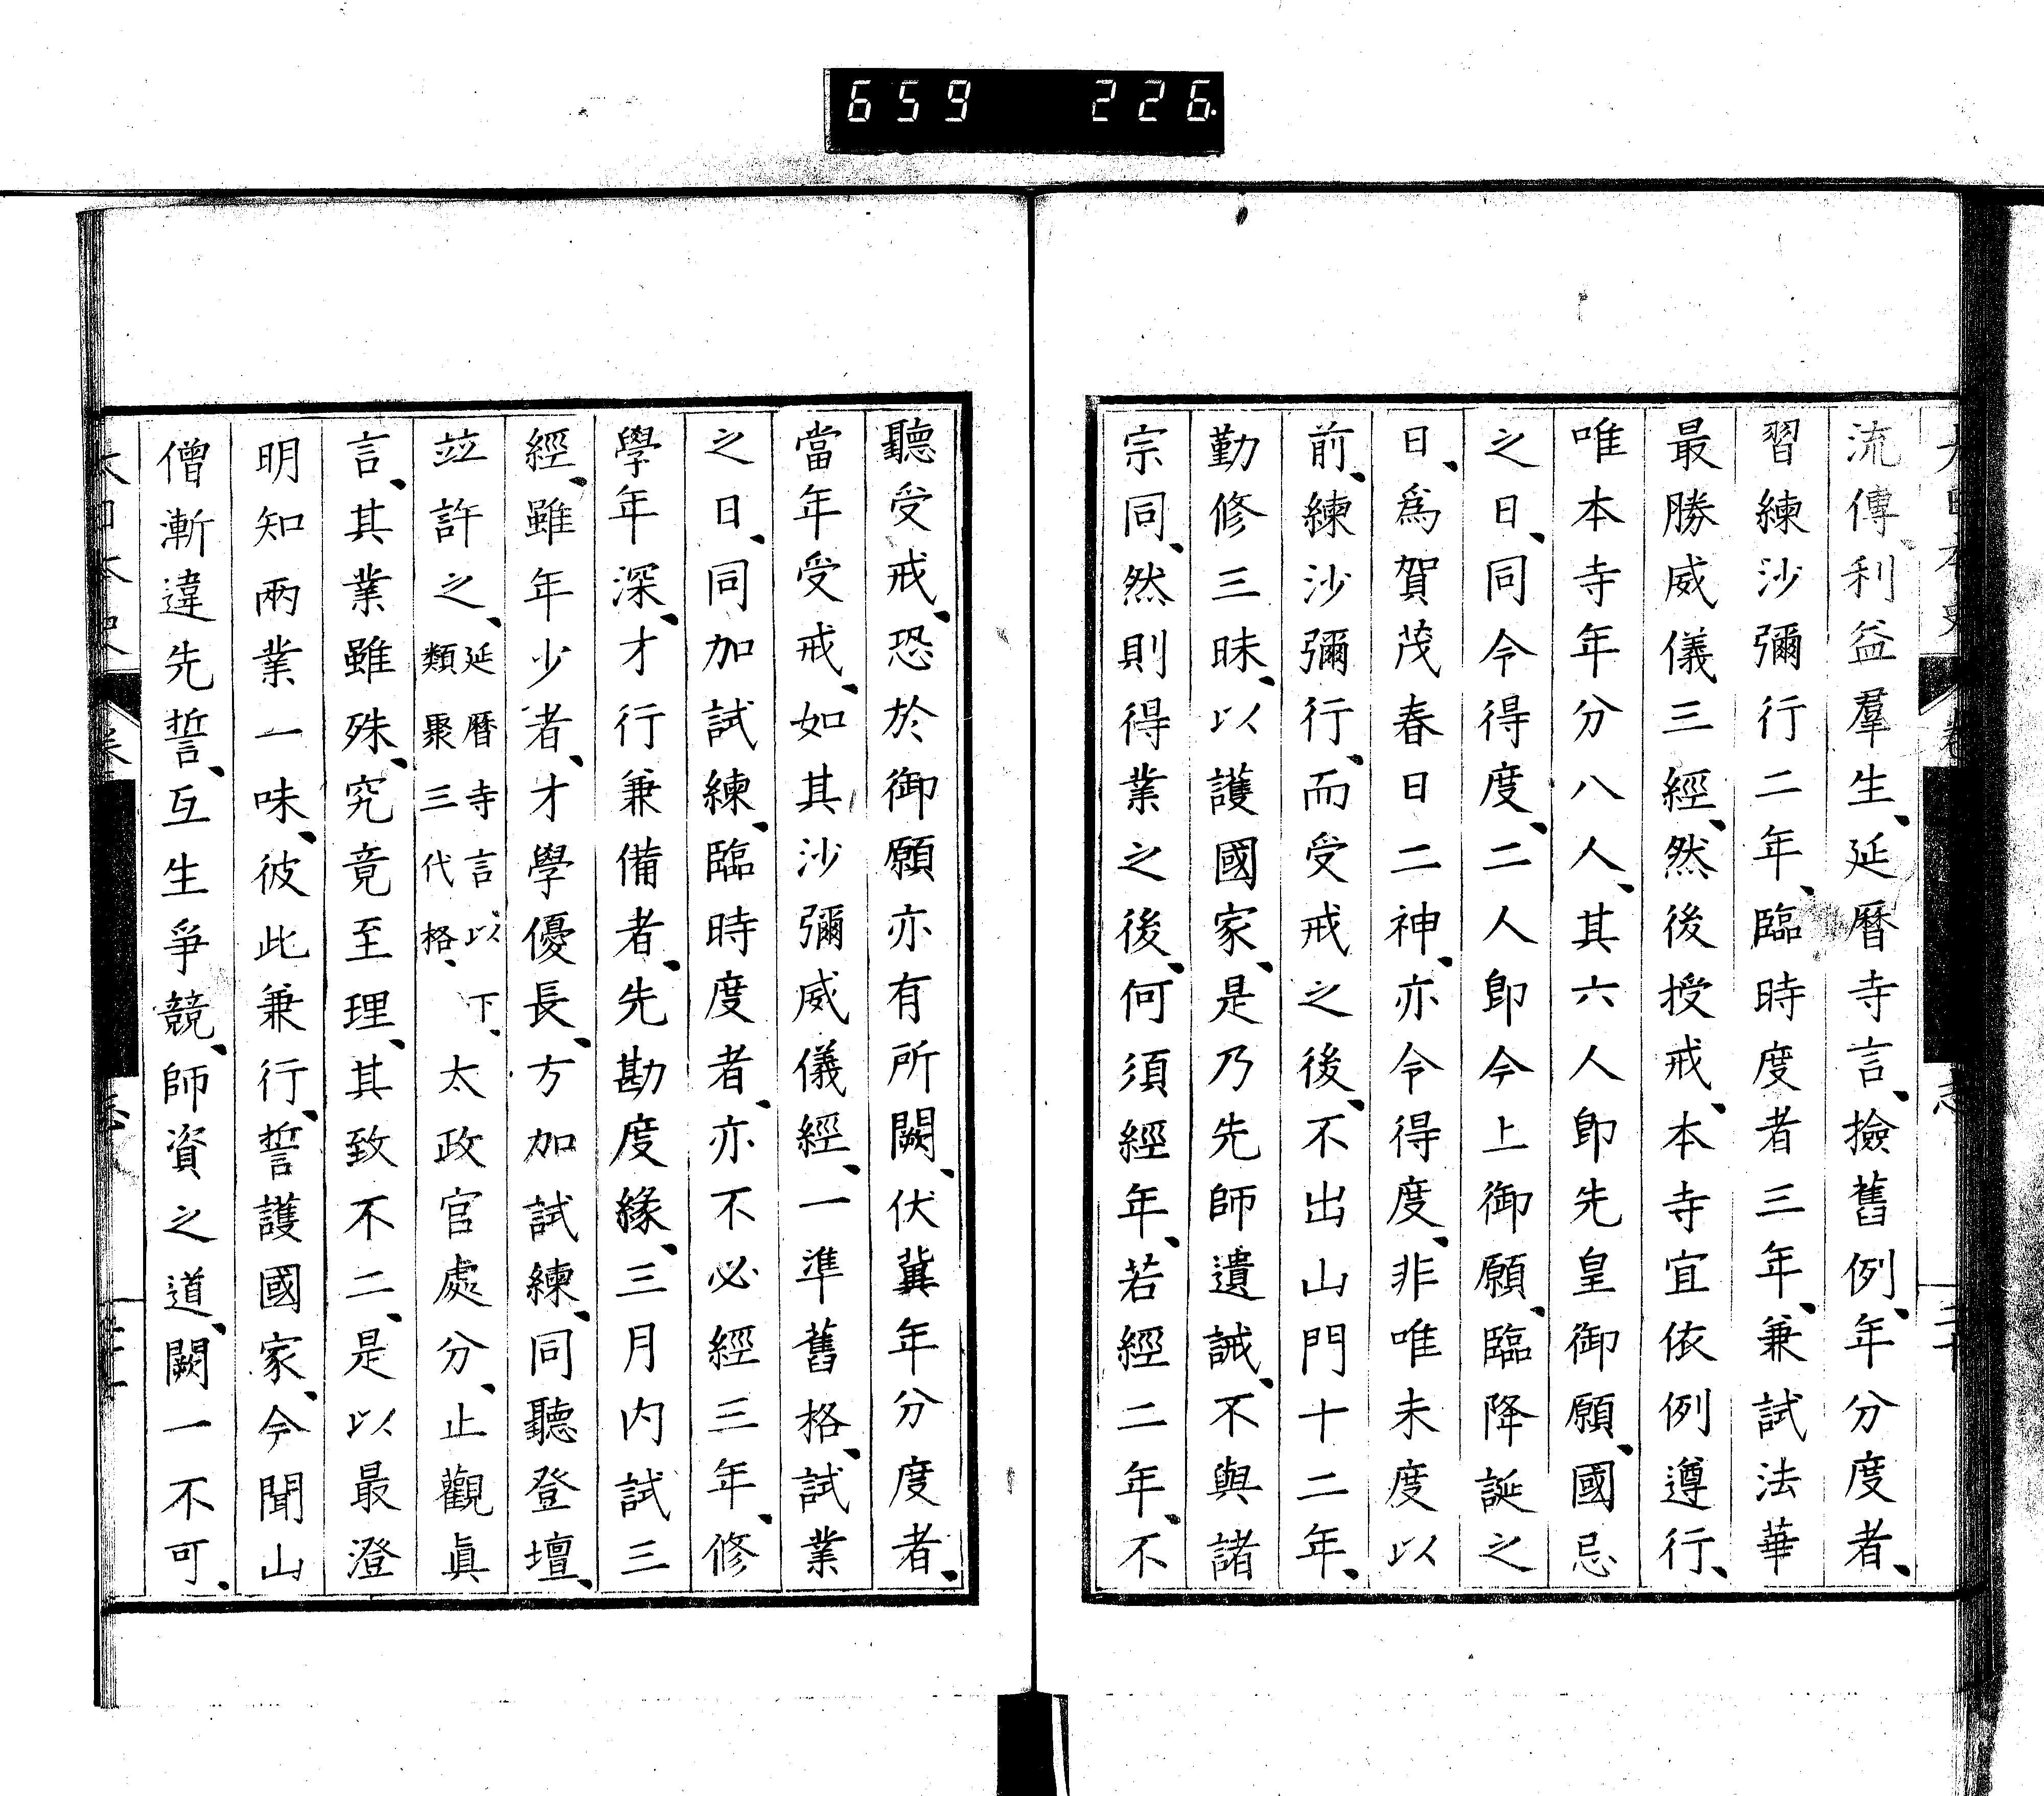 659 226
流傳、利益羣生、延曆寺言、撿舊例、年分度者、
習練沙彌行二年、臨時度者三年、兼試法華
最勝威儀三經、然後授戒、本寺宜依例遵行、
唯本寺年分八人、其六人卽先皇御願、國忌
之日、同令得度、二人卽今上御願、臨降誕之
日、爲賀茂春日二神、亦令得度、非唯未度以
前、練沙彌行、而受戒之後、不出山門十二年、
勤修三昧、以護國家、是乃先師遺誡、不與諸
宗同、然則得業之後、何須經年、若經二年、不
聽受戒、恐於御願亦有所闕、伏冀年分度者、
當年受戒、如其沙彌威儀經、一準舊格、試業
之日、同加試練、臨時度者、亦不必經三年、修
學年深、才行兼備者、先勘度緣、三月内試三
經、雖年少者、才學優長、方加試練、同聽登壇、
竝許之、延曆寺言以下、類聚三代格、太政官處分、止觀眞
言、其業雖殊、究竟至理、其致不二、是以最澄
明知兩業一味、彼此兼行、誓護國家、今聞山
僧漸違先誓、互生爭競、師資之道、闕一不可、